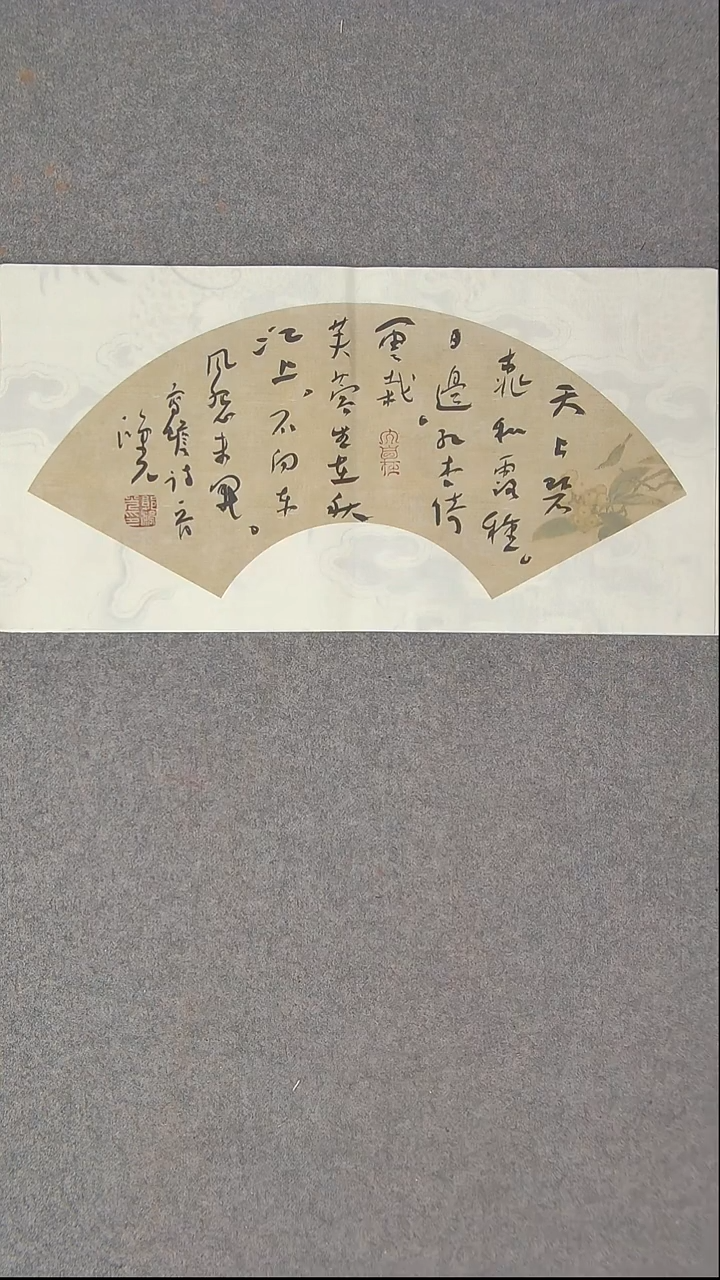 天上碧
桃和露種。
日邊紅杏倚
雲栽。
芙蓉生在秋
江上、不向東
風怨未開。
高蟾詩